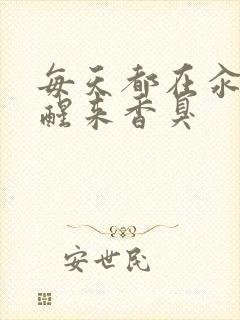 每天都在汆
醒来香臭
安世民